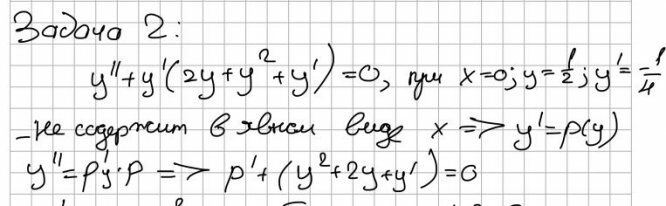 Задача 2:
y'' + y'(2y + y² + y') = 0, при x=0; y = 1/2; y' = -1/4
- не содержит в явном виде x => y' = p(y)
y'' = p'y · p => p' + (y² + 2y + y') = 0